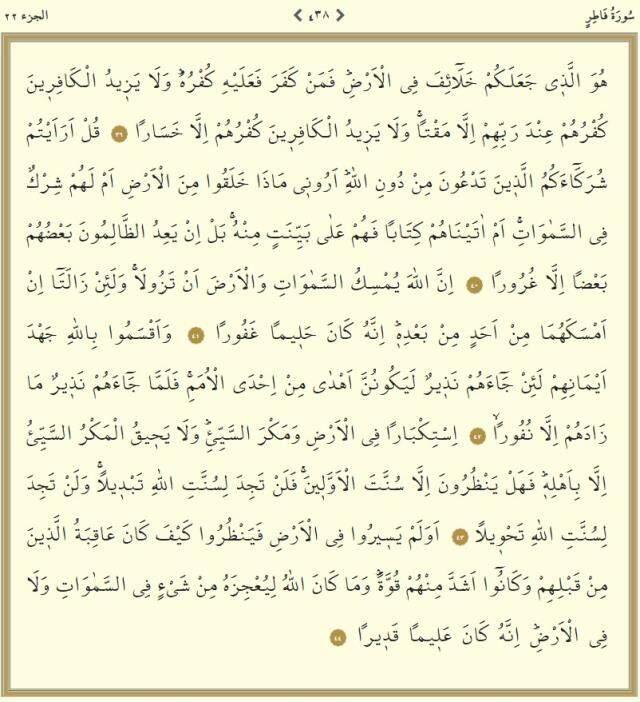 سُورَةُ فَاطِرٍ ❮ ٤٣٨ ❯ الجزء ٢٢
هُوَ الَّذ۪ي جَعَلَكُمْ خَلَٓائِفَ فِي الْاَرْضِۜ فَمَنْ كَفَرَ فَعَلَيْهِ كُفْرُهُۜ وَلَا يَز۪يدُ الْكَافِر۪ينَ
كُفْرُهُمْ عِنْدَ رَبِّهِمْ اِلَّا مَقْتًاۚ وَلَا يَز۪يدُ الْكَافِر۪ينَ كُفْرُهُمْ اِلَّا خَسَارًا ٣٩ قُلْ اَرَاَيْتُمْ
شُرَكَٓاءَكُمُ الَّذ۪ينَ تَدْعُونَ مِنْ دُونِ اللّٰهِۜ اَرُون۪ي مَاذَا خَلَقُوا مِنَ الْاَرْضِ اَمْ لَهُمْ شِرْكٌ
فِي السَّمٰوَاتِۚ اَمْ اٰتَيْنَاهُمْ كِتَابًا فَهُمْ عَلٰى بَيِّنَتٍ مِنْهُۚ بَلْ اِنْ يَعِدُ الظَّالِمُونَ بَعْضُهُمْ
بَعْضًا اِلَّا غُرُورًا ٤٠ اِنَّ اللّٰهَ يُمْسِكُ السَّمٰوَاتِ وَالْاَرْضَ اَنْ تَزُولَاۚ وَلَئِنْ زَالَتَٓا اِنْ
اَمْسَكَهُمَا مِنْ اَحَدٍ مِنْ بَعْدِه۪ۜ اِنَّهُ كَانَ حَل۪يمًا غَفُورًا ٤١ وَاَقْسَمُوا بِاللّٰهِ جَهْدَ
اَيْمَانِهِمْ لَئِنْ جَٓاءَهُمْ نَذ۪يرٌ لَيَكُونُنَّ اَهْدٰى مِنْ اِحْدَى الْاُمَمِۚ فَلَمَّا جَٓاءَهُمْ نَذ۪يرٌ مَا
زَادَهُمْ اِلَّا نُفُورًاۙ ٤٢ اِسْتِكْبَارًا فِي الْاَرْضِ وَمَكْرَ السَّيِّئِۜ وَلَا يَح۪يقُ الْمَكْرُ السَّيِّئُ
اِلَّا بِاَهْلِه۪ۜ فَهَلْ يَنْظُرُونَ اِلَّا سُنَّتَ الْاَوَّل۪ينَۚ فَلَنْ تَجِدَ لِسُنَّتِ اللّٰهِ تَبْد۪يلًاۚ وَلَنْ تَجِدَ
لِسُنَّتِ اللّٰهِ تَحْو۪يلًا ٤٣ اَوَلَمْ يَس۪يرُوا فِي الْاَرْضِ فَيَنْظُرُوا كَيْفَ كَانَ عَاقِبَةُ الَّذ۪ينَ
مِنْ قَبْلِهِمْ وَكَانُٓوا اَشَدَّ مِنْهُمْ قُوَّةًۜ وَمَا كَانَ اللّٰهُ لِيُعْجِزَهُ مِنْ شَيْءٍ فِي السَّمٰوَاتِ وَلَا
فِي الْاَرْضِۜ اِنَّهُ كَانَ عَل۪يمًا قَد۪يرًا ٤٤